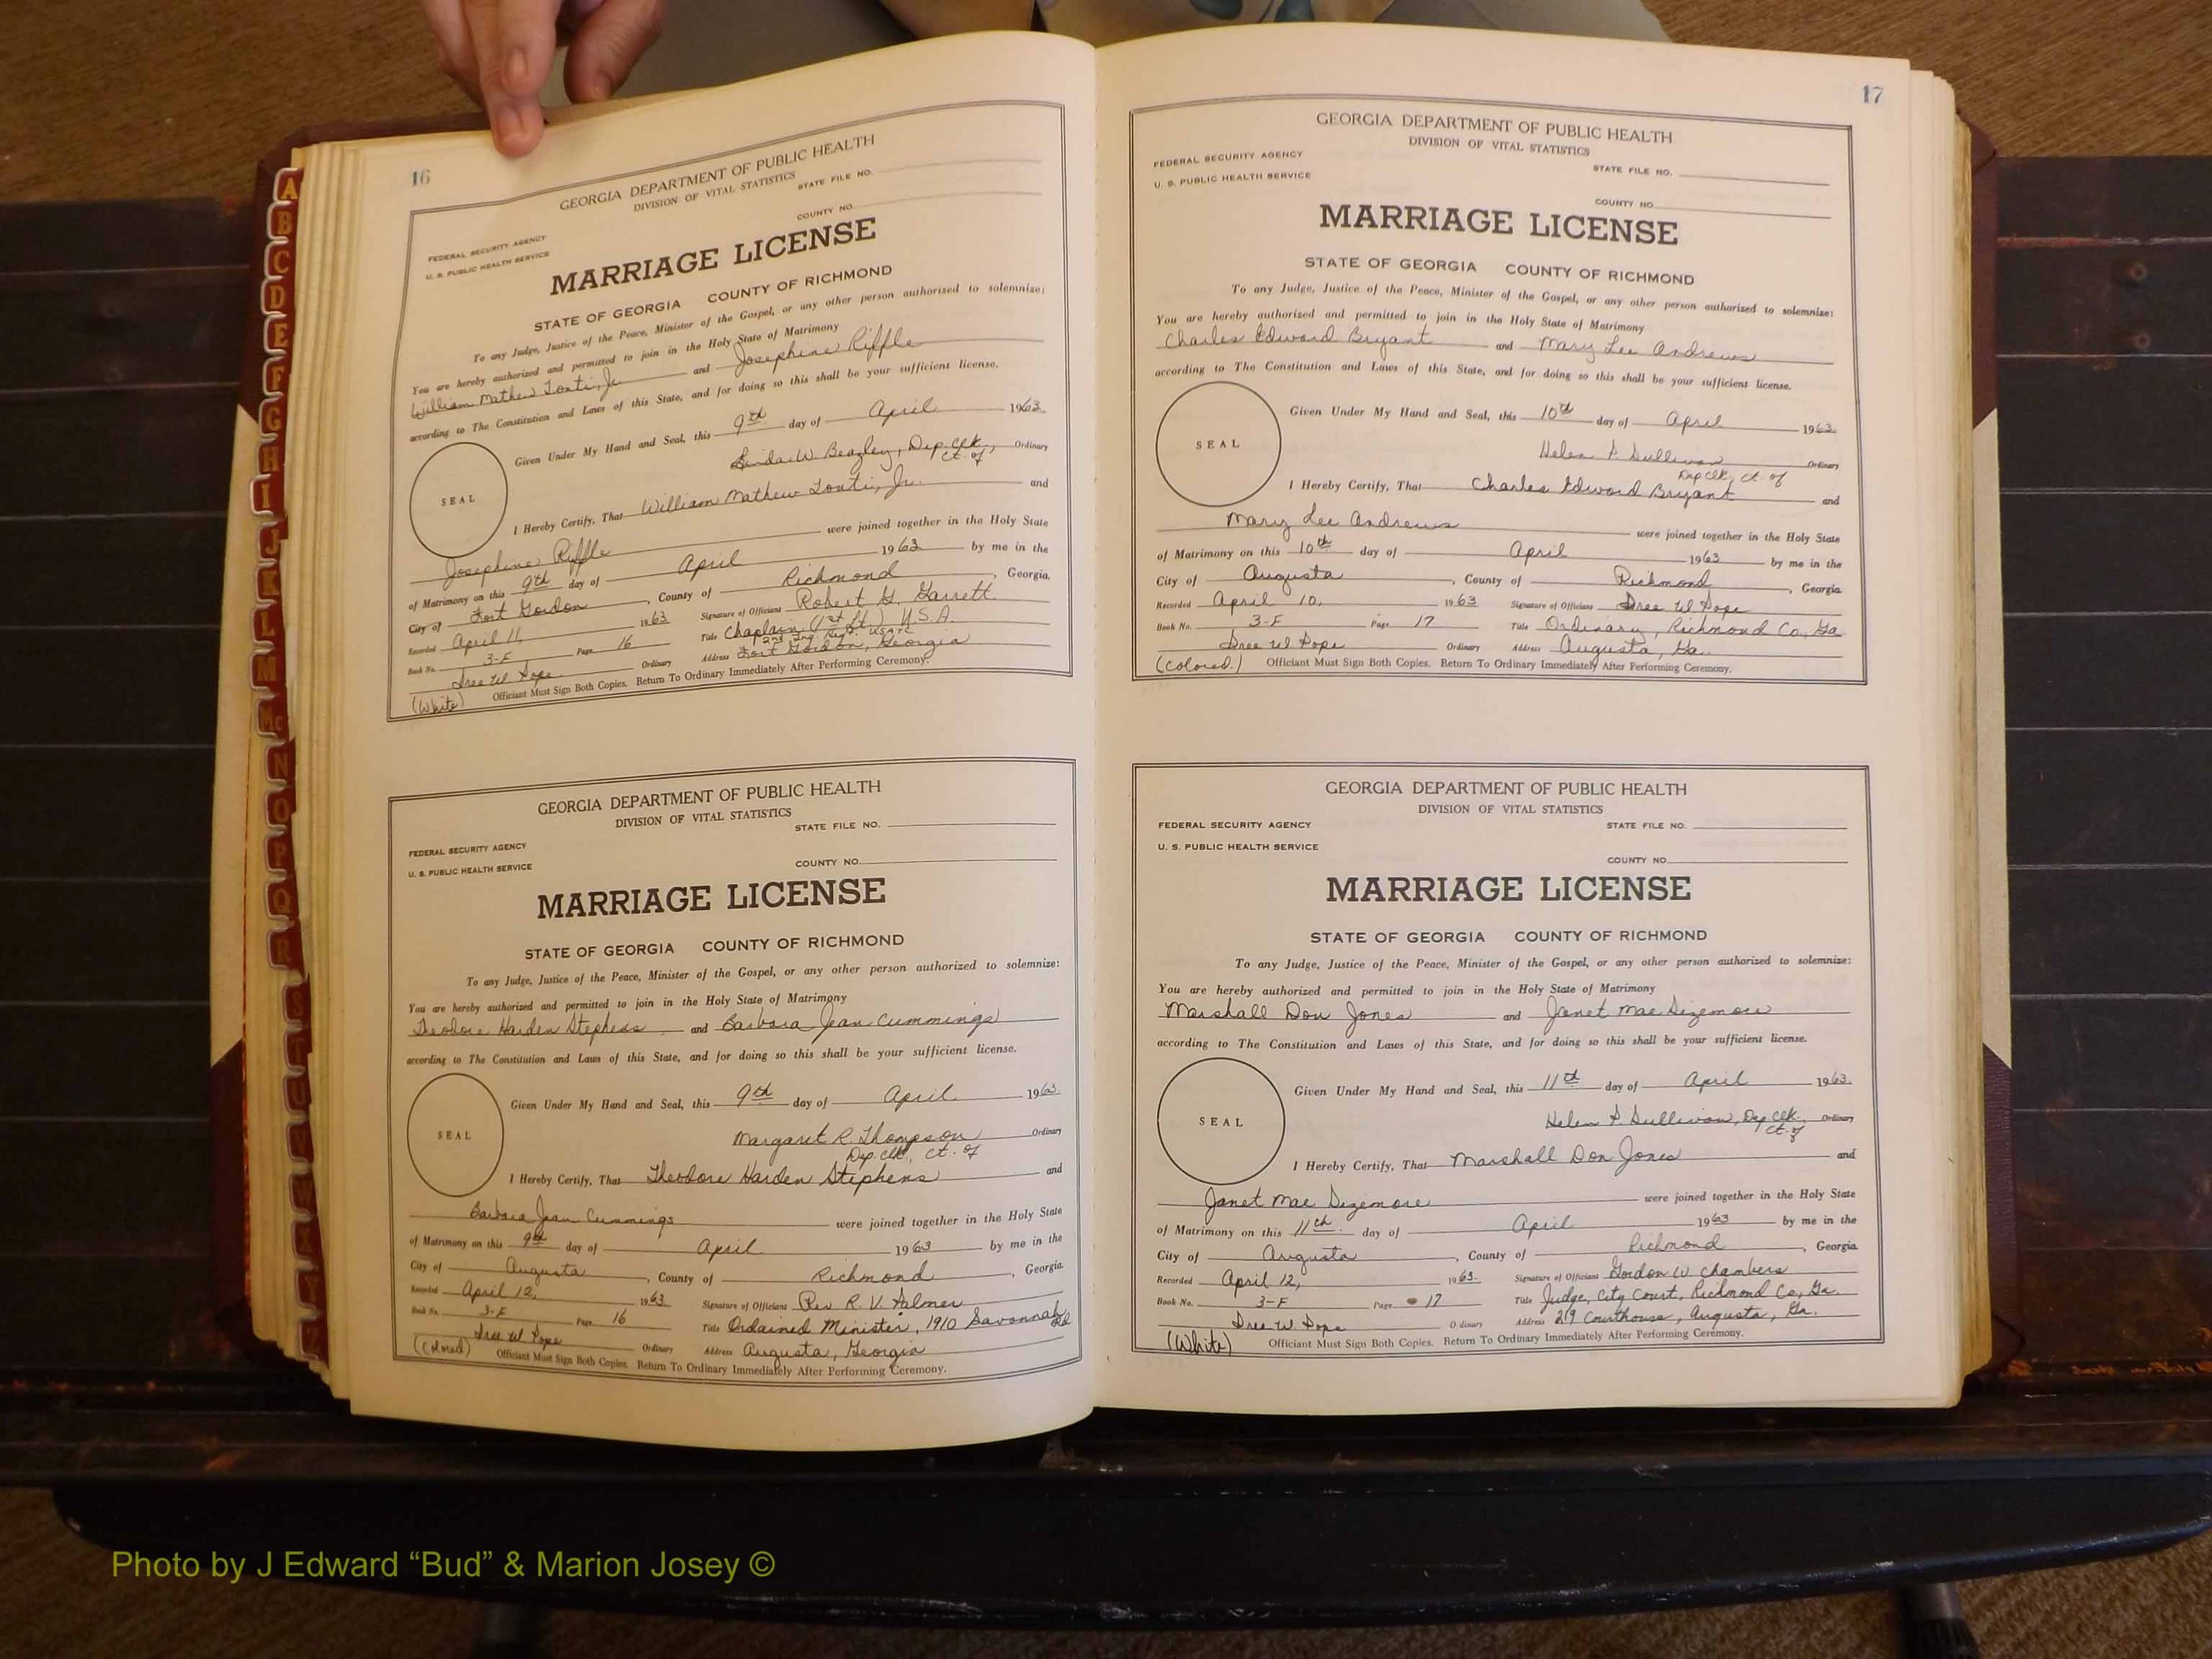 16
GEORGIA DEPARTMENT OF PUBLIC HEALTH
DIVISION OF VITAL STATISTICS
STATE FILE NO.
COUNTY NO.
FEDERAL SECURITY AGENCY
U. S. PUBLIC HEALTH SERVICE
MARRIAGE LICENSE
STATE OF GEORGIA COUNTY OF RICHMOND
To any Judge, Justice of the Peace, Minister of the Gospel, or any other person authorized to solemnize:
You are hereby authorized and permitted to join in the Holy State of Matrimony
William Mathew Jr. and Josephine Riffle
according to The Constitution and Laws of this State, and for doing so this shall be your sufficient license.
SEAL
Given Under My Hand and Seal, this 9th day of April 1963
Linda W. Beazley, Dep. Clk. Ordinary
Ct. of
I Hereby Certify, That William Mathew Jr. and
Josephine Riffle were joined together in the Holy State
of Matrimony on this 9th day of April 1963 by me in the
City of Fort Gordon, County of Richmond, Georgia.
Recorded April 11, 1963 Signature of Officiant Robert G. Garrett
Book No. 3-F Page 16 Title Chaplain (1st Lt.) U.S.A.
2nd Ing. Regt.
Ordinary Address Fort Gordon, Georgia
(White) Officiant Must Sign Both Copies. Return To Ordinary Immediately After Performing Ceremony.
GEORGIA DEPARTMENT OF PUBLIC HEALTH
DIVISION OF VITAL STATISTICS
STATE FILE NO.
FEDERAL SECURITY AGENCY
U. S. PUBLIC HEALTH SERVICE
COUNTY NO.
MARRIAGE LICENSE
STATE OF GEORGIA COUNTY OF RICHMOND
To any Judge, Justice of the Peace, Minister of the Gospel, or any other person authorized to solemnize:
You are hereby authorized and permitted to join in the Holy State of Matrimony
Theodore Harden Stephens and Barbara Jean Cummings
according to The Constitution and Laws of this State, and for doing so this shall be your sufficient license.
SEAL
Given Under My Hand and Seal, this 9th day of April 1963
Margaret R. Thompson Ordinary
Dep. Clk. Ct. of
I Hereby Certify, That Theodore Harden Stephens and
Barbara Jean Cummings were joined together in the Holy State
of Matrimony on this 9th day of April 1963 by me in the
City of Augusta, County of Richmond, Georgia.
Recorded April 12, 1963 Signature of Officiant Rev R. V. Palmer
Book No. 3-F Page 16 Title Ordained Minister, 1910 Savannah Rd
Ordinary Address Augusta, Georgia
(Colored) Officiant Must Sign Both Copies. Return To Ordinary Immediately After Performing Ceremony.
17
GEORGIA DEPARTMENT OF PUBLIC HEALTH
DIVISION OF VITAL STATISTICS
FEDERAL SECURITY AGENCY
U. S. PUBLIC HEALTH SERVICE
STATE FILE NO.
COUNTY NO.
MARRIAGE LICENSE
STATE OF GEORGIA COUNTY OF RICHMOND
To any Judge, Justice of the Peace, Minister of the Gospel, or any other person authorized to solemnize:
You are hereby authorized and permitted to join in the Holy State of Matrimony
Charles Edward Bryant and Mary Lee Andrews
according to The Constitution and Laws of this State, and for doing so this shall be your sufficient license.
SEAL
Given Under My Hand and Seal, this 10th day of April 1963
Helen P. Sullivan Ordinary
Dep Clk, Ct. of
I Hereby Certify, That Charles Edward Bryant and
Mary Lee Andrews were joined together in the Holy State
of Matrimony on this 10th day of April 1963 by me in the
City of Augusta, County of Richmond, Georgia.
Recorded April 10, 1963 Signature of Officiant
Book No. 3-F Page 17 Title Ordinary, Richmond Co., Ga
Ordinary Address Augusta, Ga.
(Colored.) Officiant Must Sign Both Copies. Return To Ordinary Immediately After Performing Ceremony.
GEORGIA DEPARTMENT OF PUBLIC HEALTH
DIVISION OF VITAL STATISTICS
FEDERAL SECURITY AGENCY
STATE FILE NO.
U. S. PUBLIC HEALTH SERVICE
COUNTY NO.
MARRIAGE LICENSE
STATE OF GEORGIA COUNTY OF RICHMOND
To any Judge, Justice of the Peace, Minister of the Gospel, or any other person authorized to solemnize:
You are hereby authorized and permitted to join in the Holy State of Matrimony
Marshall Don Jones and Janet Mae Sizemore
according to The Constitution and Laws of this State, and for doing so this shall be your sufficient license.
SEAL
Given Under My Hand and Seal, this 11th day of April 1963
Helen P. Sullivan, Dep Clk. Ordinary
Ct. of
I Hereby Certify, That Marshall Don Jones and
Janet Mae Sizemore were joined together in the Holy State
of Matrimony on this 11th day of April 1963 by me in the
City of Augusta, County of Richmond, Georgia.
Recorded April 12, 1963. Signature of Officiant Gordon W Chambers
Book No. 3-F Page 17 Title Judge, City Court, Richmond Co., Ga.
Ordinary Address 219 Courthouse, Augusta, Ga.
(White) Officiant Must Sign Both Copies. Return To Ordinary Immediately After Performing Ceremony.
A
B
C
D
E
F
G
H
I
J
K
L
M
Mc
N
O
P
Q
R
S
T
U
V
W
Photo by J Edward “Bud” & Marion Josey ©